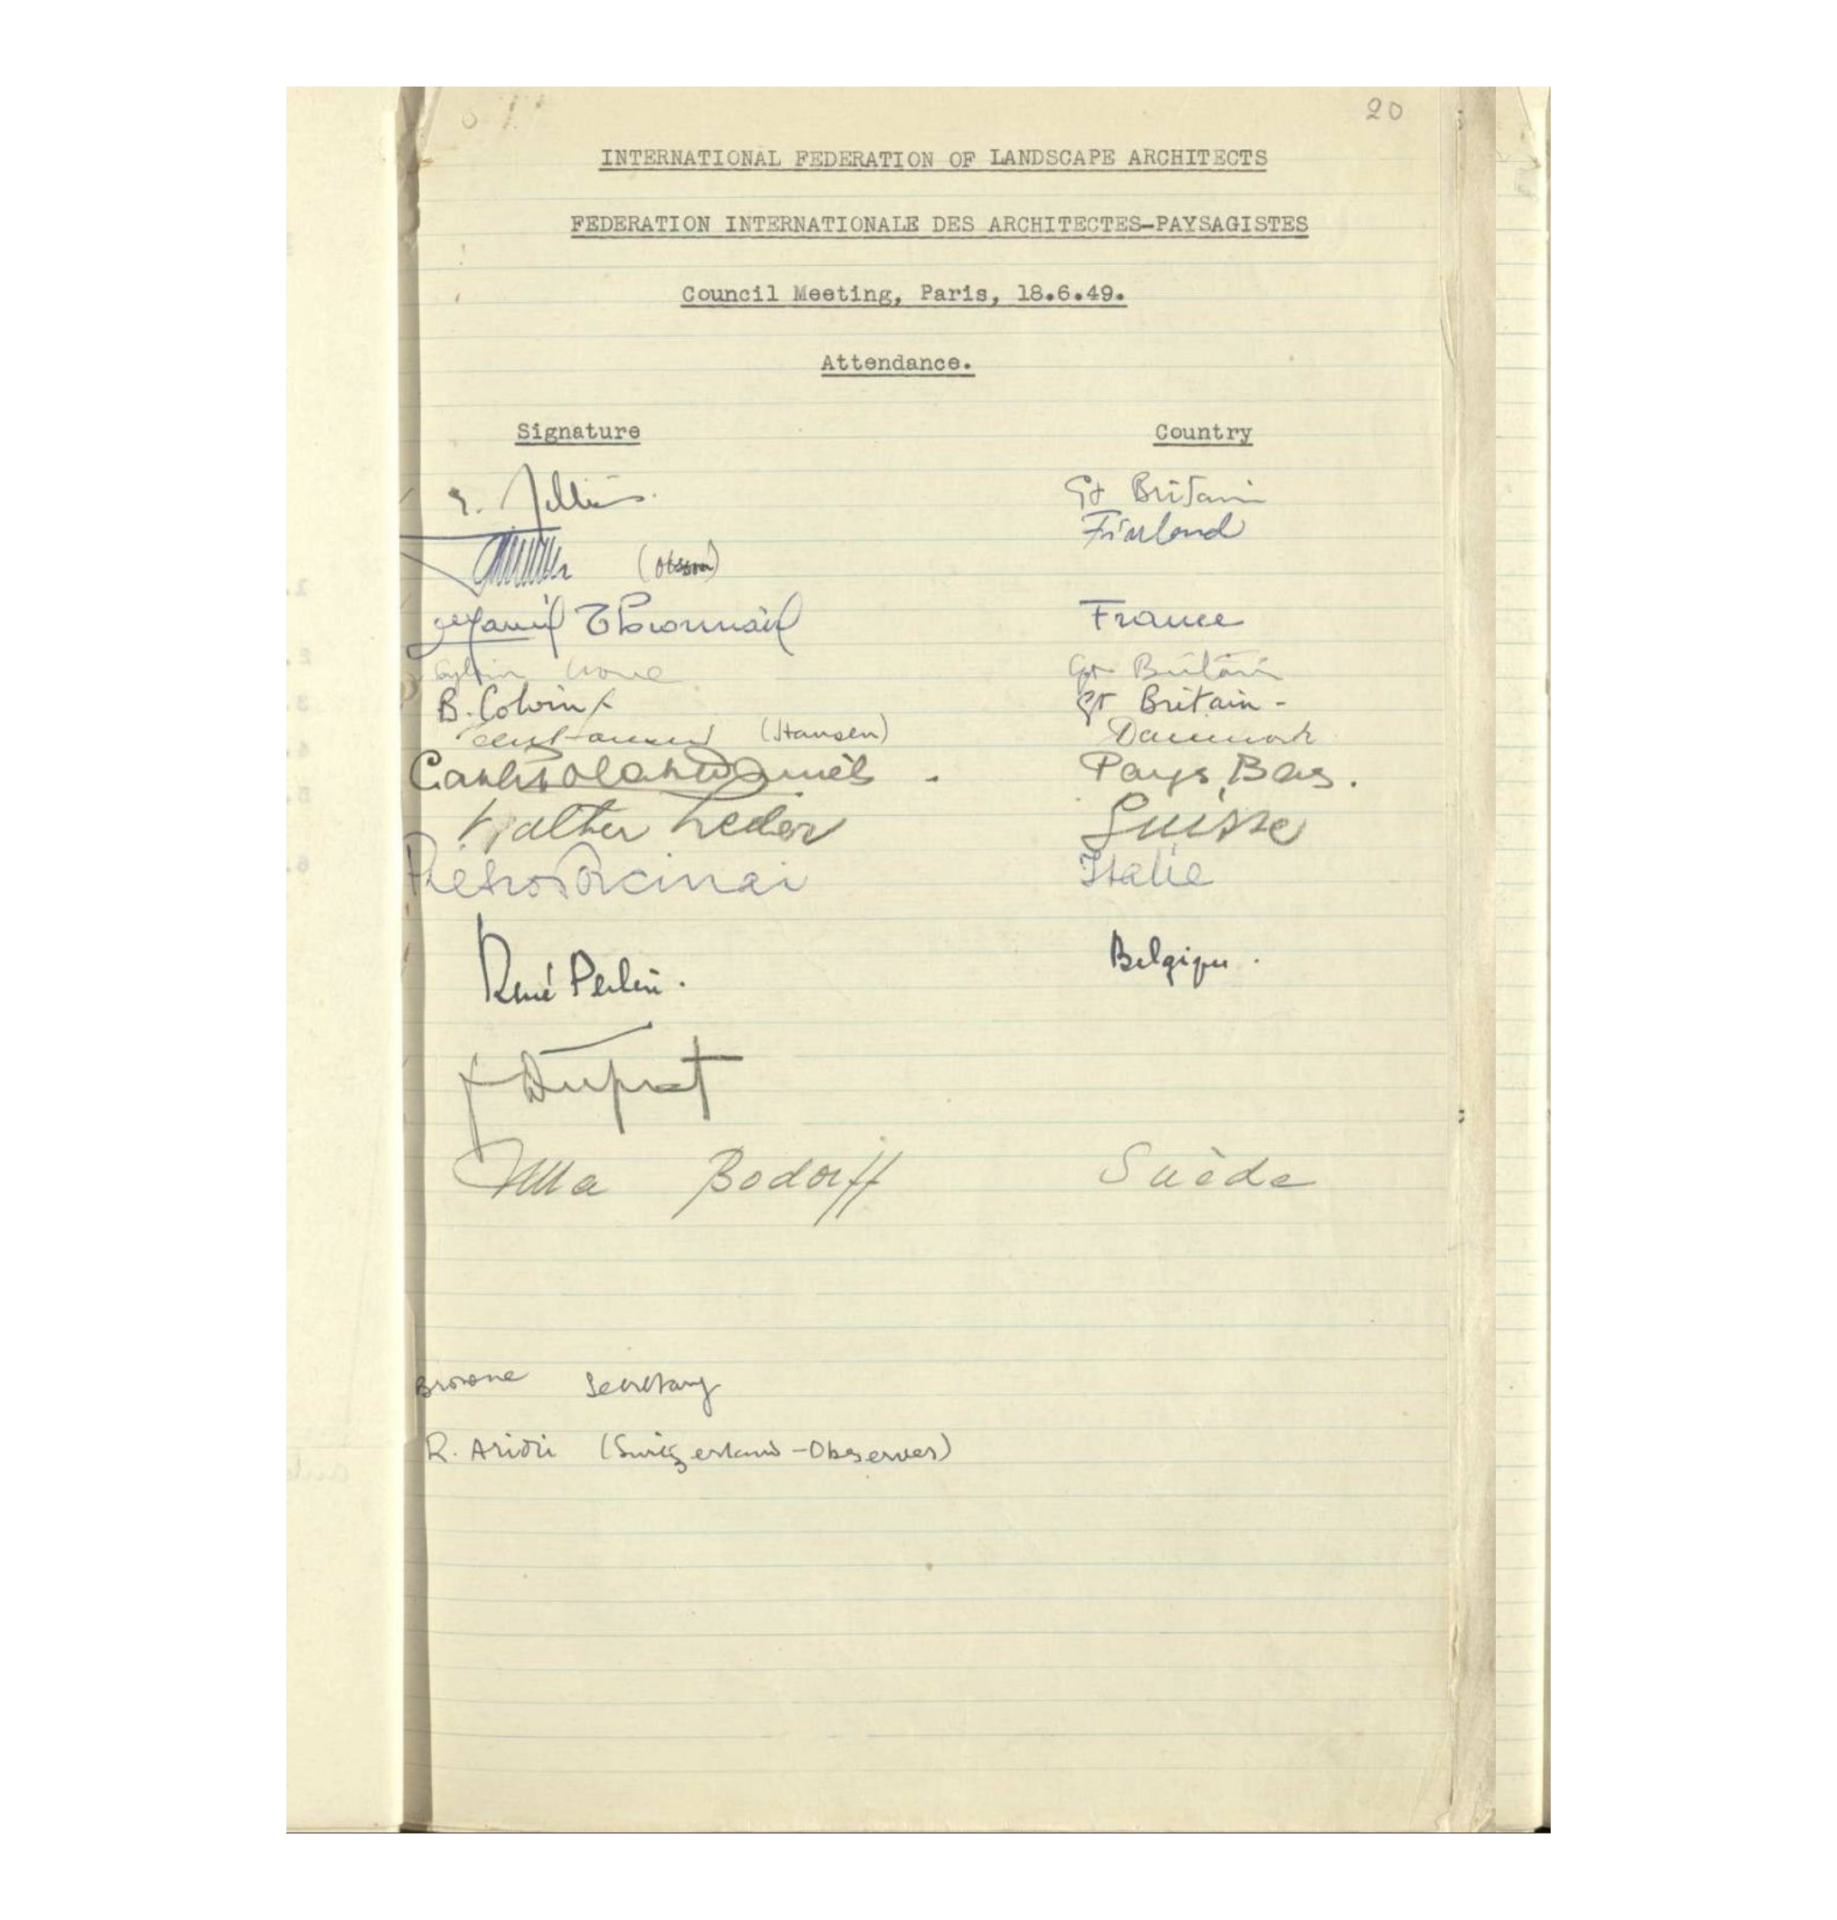 20
INTERNATIONAL FEDERATION OF LANDSCAPE ARCHITECTS
FEDERATION INTERNATIONALE DES ARCHITECTES-PAYSAGISTES
Council Meeting, Paris, 18.6.49.
Attendance.
Signature Country
Gt Britain
Finland
France
Gt Britain
B. Colvin Gt Britain -
(Hansen) Danmark
Pays, Bas.
Walther Leder Suisse
Pietro Porcinai Italie
René Belgique.
F Duprat
Ulla Bodorff Suède
Browne Secretary
R. Arioli (Switzerland - Observer)